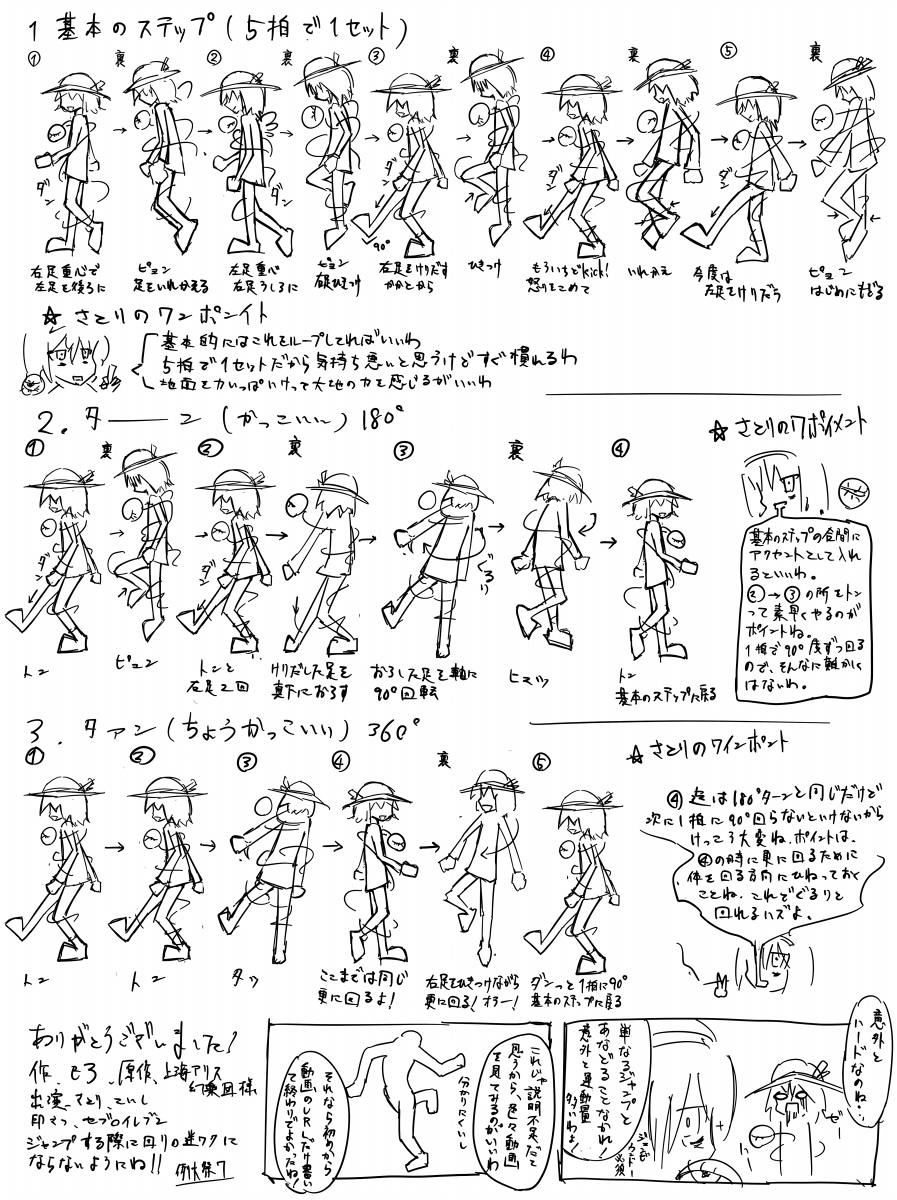 1 基本のステップ(5拍で1セット)
① 裏 ② 裏 ③ 裏 ④ 裏 ⑤ 裏
ダン
ダン
ダン
90°
ダン
ダン
右足重心で
左足を後ろに
ピョン
足をいれかえる
左足重心
右足うしろに
ピョン
右足ひきつけ
右足をけりだす
かかとから
ひきつけ
もういちどkick!
怒りをこめて
いれかえ
今度は
左足をけりだう
ピョン
はじめにもどる
☆ さとりのワンポンイト
基本的にはこれをループしてればいいわ
5拍で1セットだから気持ち悪いと思うけどすぐ慣れるわ
地面を力いっぱいけって大地の力を感じるがいいわ
2. ターーン (かっこいい) 180°
① 裏 ② 裏 ③ 裏 ④
ダン
ダン
ぐるり
トン
ピョン
トンと
左足2回
けりだした足を
真下におろす
おろした足を軸に
90°回転
ヒョッ
トン
基本のステップに戻る
☆ さとりのワポイメント
基本のステップの合間に
アクセントとして入れ
るといいわ。
②→③の所をトン
って素早くやるのが
ポイントね。
1拍で90°度ずつ回る
ので、そんなに難かしく
はないわ。
3. タァン(ちょうかっこいい) 360°
① ② ③ ④ 裏 ⑤
トン
トン
タッ
ここまでは同じ
更に回るよ!
右足をひきつけながら
更に回る!オラー!
ダンっと1拍に90°
基本のステップに戻る
☆ さとりのワインポント
④迄は180°ターンと同じだけど
次に1拍に90°回らないといけないから
けっこう大変ね。ポイントは、
④の時に更に回るために
体を回る方向にひねっておく
ことね。これでぐるりと
回れるハズよ。
ありがとうございました!
作、もろ、原作、上海アリス
幻樂団様
出演、さとり、こいし
印さつ、セブロイレブン
ジャンプする際に回りの迷ワクに
ならないようにね!!
例大祭7
これじゃ説明不足だと
思うから、色々動画
を見てみるのがいいわ
分かりにくいし
それなら初めから
動画のURLだけ書い
て終わりでよかったね!
意外と
ハードなのね…
単なるジャンプと
あなどることなかれ!
意外と運動量
多いわよ!
必須
ゼー